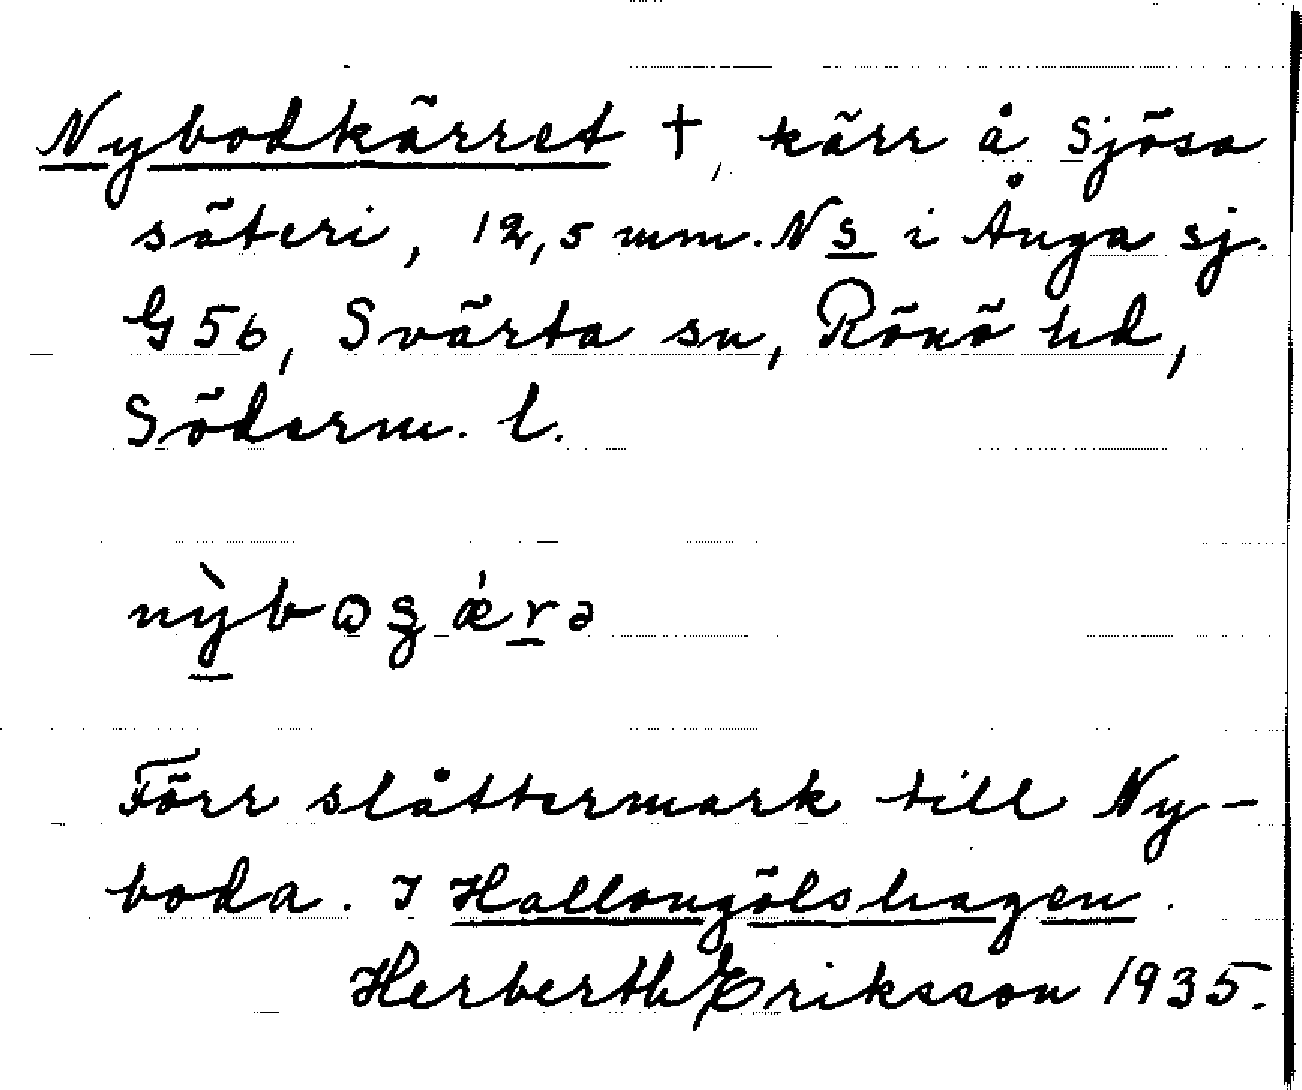 Nybodkärret †, kärr å Sjösa
säteri, 12,5 mm. N s i Ånga sj.
G 56, Svärta sn, Rönö hd,
Söderm. l.
Förr slåttermark till Ny-
boda. I Hallongölshagen.
Herberth Eriksson 1935.